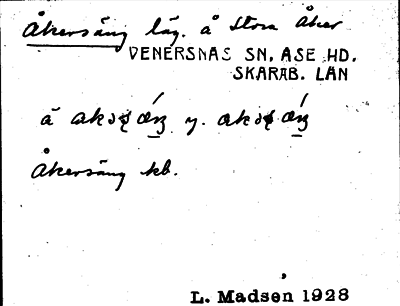 Åkersäng läg. å Stora Åker
VENERSNÄS SN, ÅSE HD.
SKARAB. LÄN
å
y.
Åkersäng kb.
L. Madsen 1928